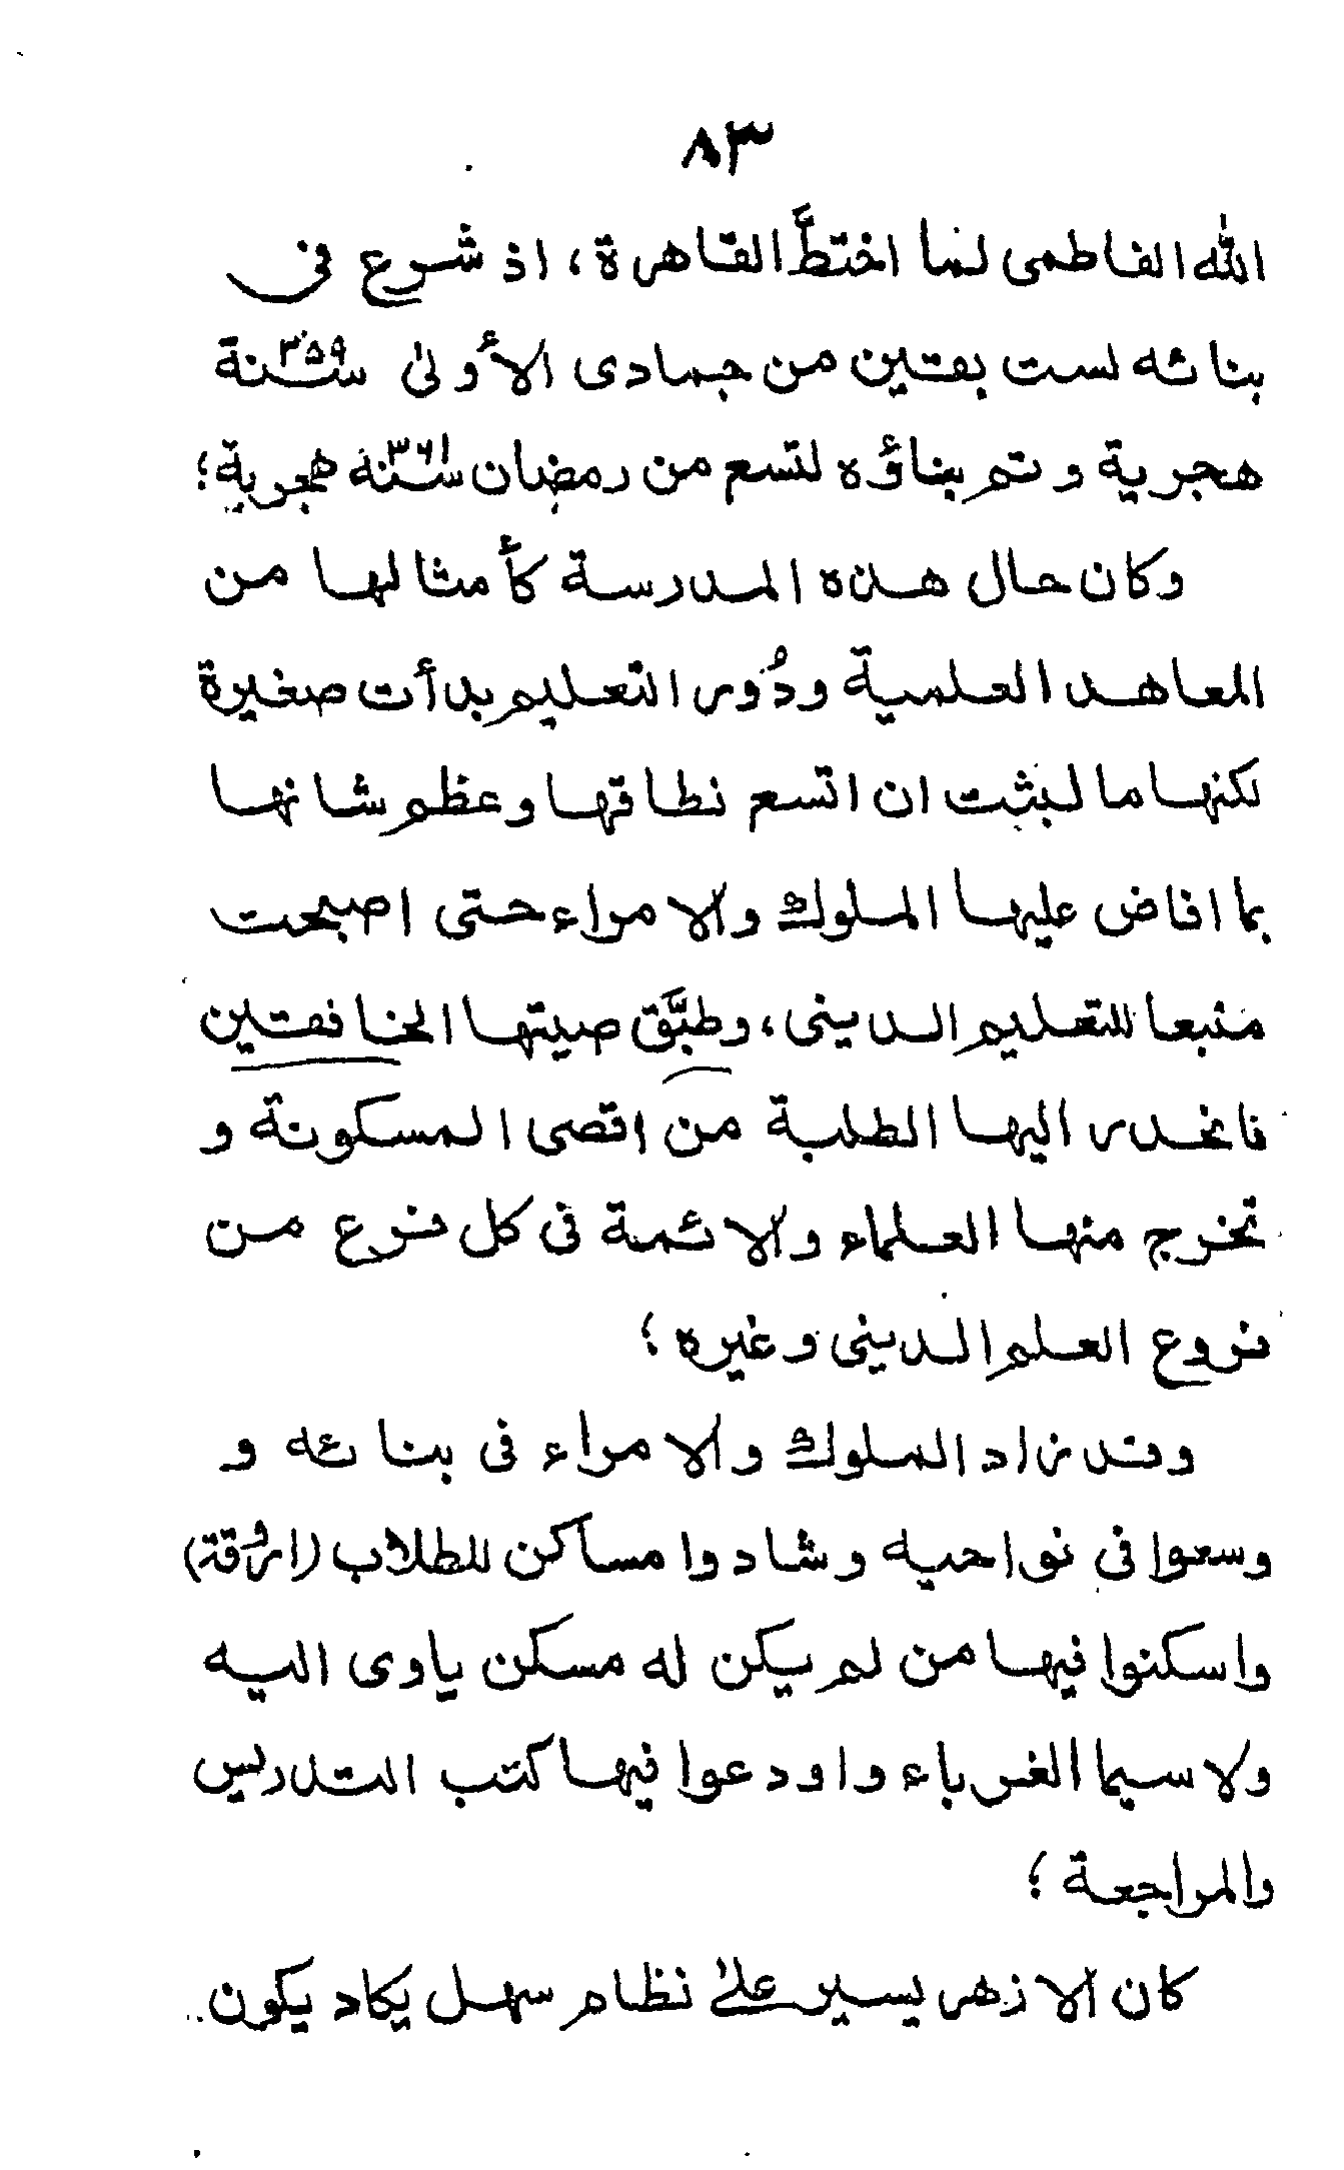 ٨٣
الله الفاطمى لما اختطَّ القاهرة، اذ شرع فى
بنائه لست بقين من جمادى الأولىٰ سنة ٣٥٩
هجرية وتم بناؤه لتسع من رمضان سنة ٣٦١ هجرية؛
وكان حال هذه المدرسة كأمثالها من
المعاهد العلمية ودُور التعليم بدأت صغيرة
لكنها ما لبثت ان اتسع نطاقها وعظم شانها
بما افاض عليها الملوك والامراء حتى اصبحت
منبعا للتعليم الدينى، وطبَّق صيتها الخافقين
فانحدر اليها الطلبة من اقصى المسكونة و
تخرج منها العلماء والائمة فى كل فرع من
فروع العلم الدينى وغيره؛
وقد زاد الملوك والامراء فى بنائه و
وسعوا فى نواحيه وشادوا مساكن للطلاب (اروقة)
واسكنوا فيها من لم يكن له مسكن ياوى اليه
ولا سيما الغرباء واودعوا فيها كتب التدريس
والمراجعة؛
كان الازهر يسير علىٰ نظام سهل يكاد يكون